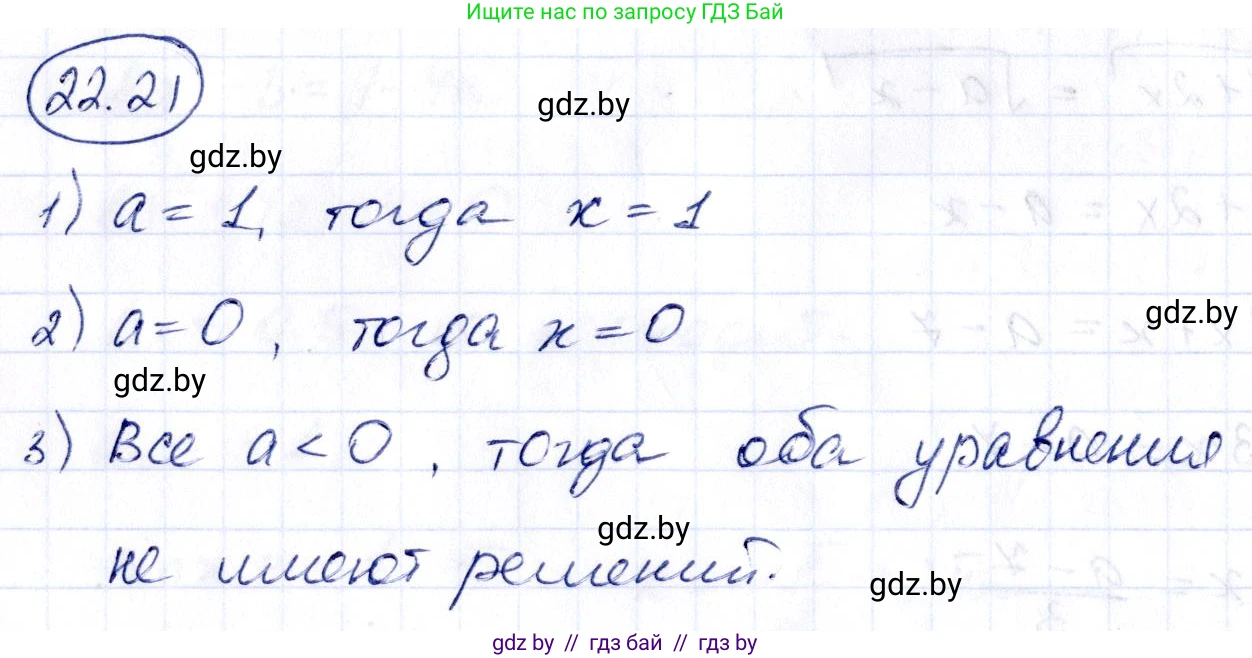 Ищите нас по запросу ГДЗ Бай
22.21
gdz.by
gdz.by
1) a = 1, тогда x = 1
2) a = 0, тогда x = 0
gdz.by
gdz.by
3) Все a < 0, тогда оба уравнения
gdz.by
не имеют решений.
gdz.by
gdz by // гдз бай // гдз by